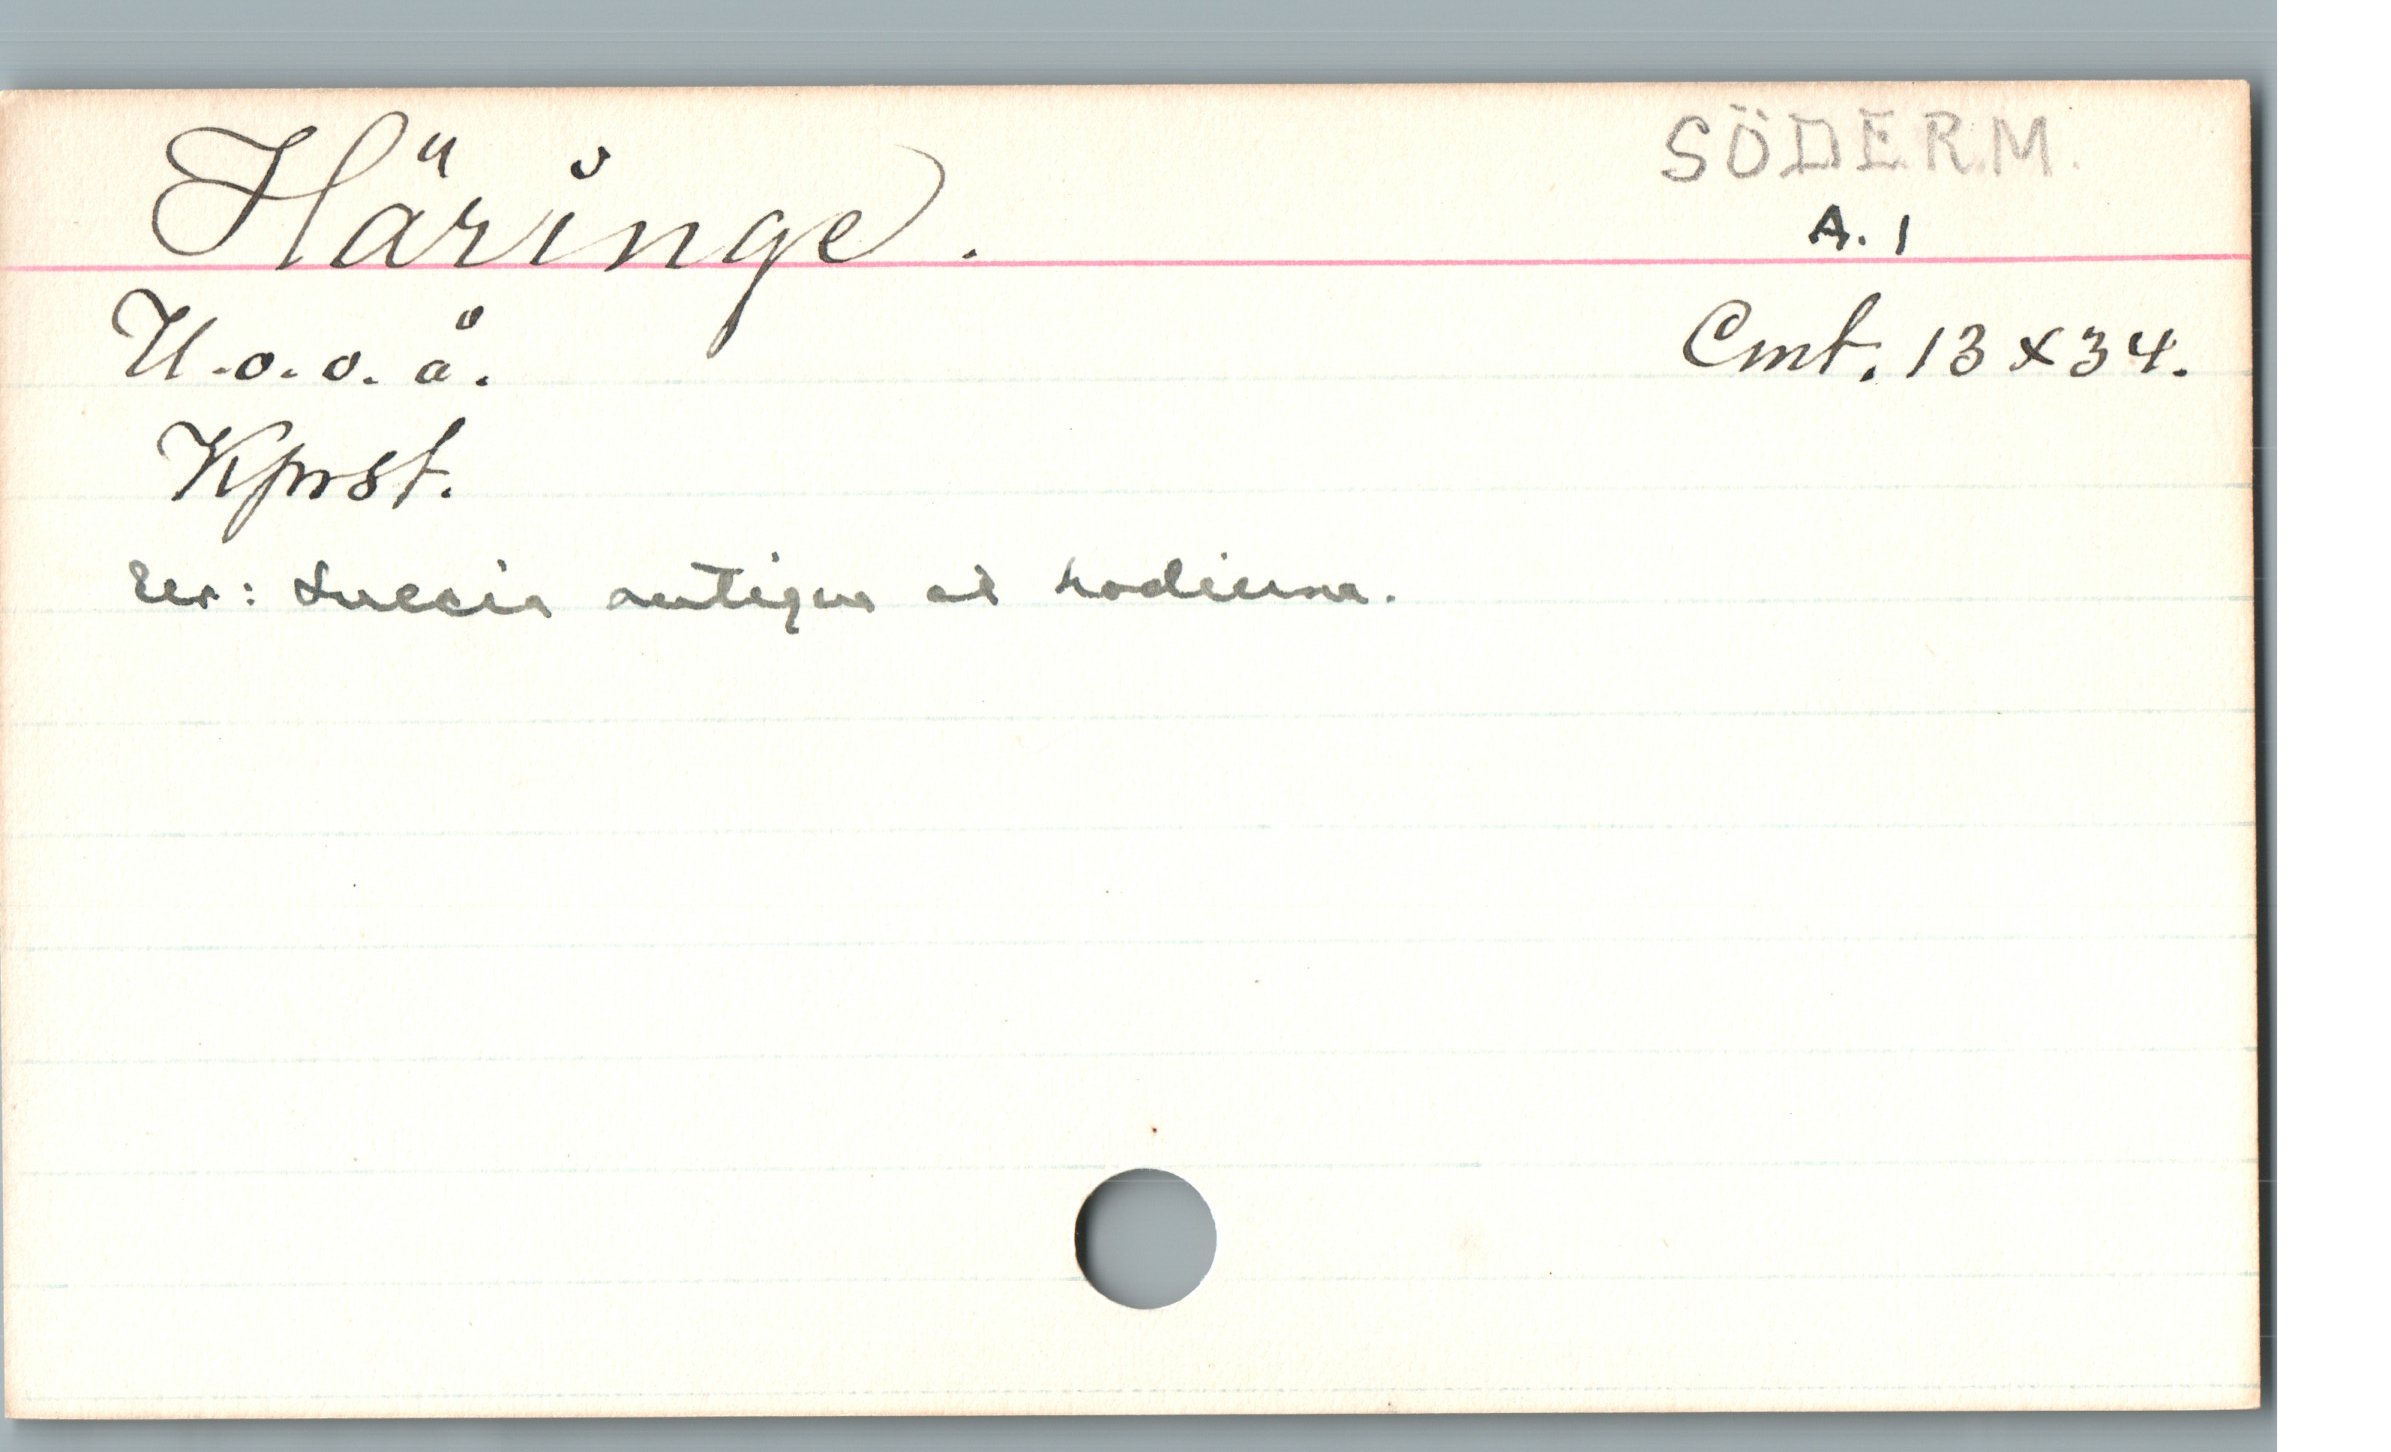 Häringe.
SÖDERM.
A. 1
U.o.o.å.
Cmt. 13 x 34.
Kprst.
Ur: Suecia antiqua et hodierna.